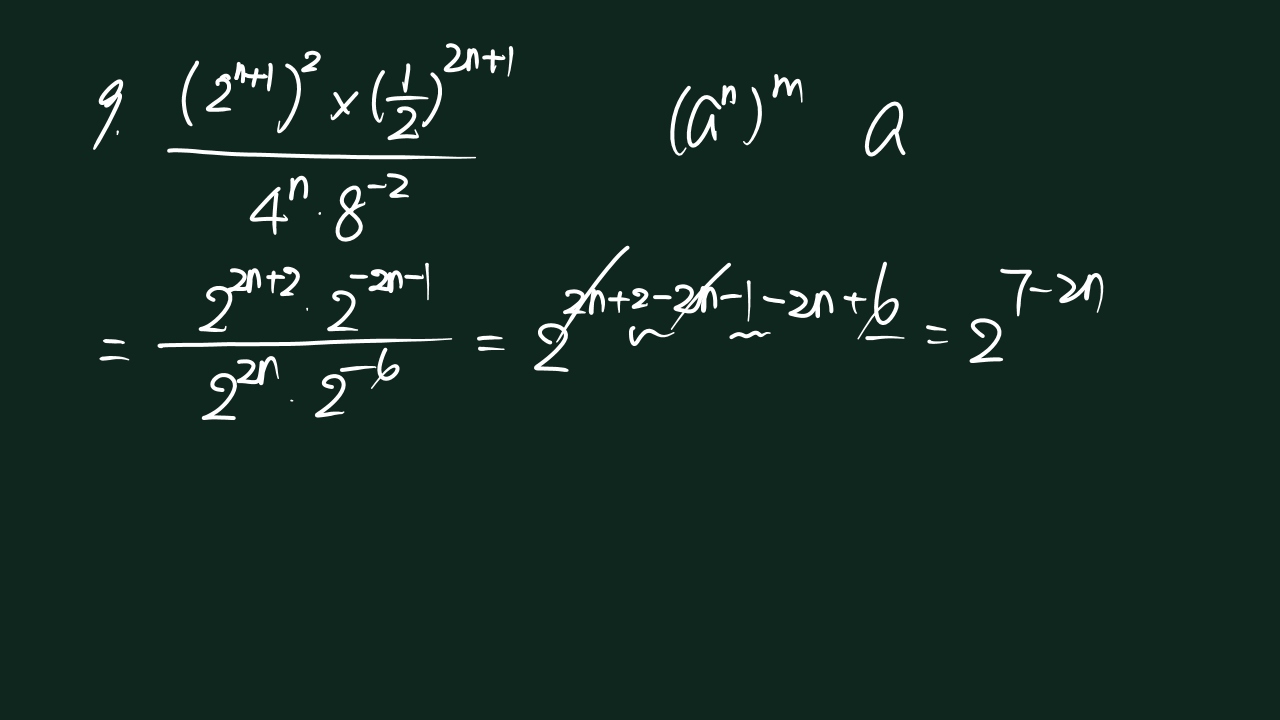 9. \frac{(2^{n+1})^2 × (\frac{1}{2})^{2n+1}}{4^n · 8^{-2}} (a^n)^m a
= \frac{2^{2n+2} · 2^{-2n-1}}{2^{2n} · 2^{-6}} = 2^{2n+2-2n-1-2n+6} = 2^{7-2n}